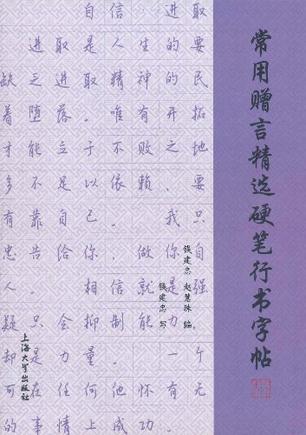 常用赠言精选硬笔行书字帖
钱建忠 赵慧珠 编
钱建忠 写
上海大学出版社
自信 进取
进取是人生的要
缺乏进取精神的民
着堕落。唯有开拓
才能立于不败之地
多不足以依赖，要
有靠自己。 我只
忠告给你，做你自
人。 相信就是强
疑只会抑制能力
却是力量。 一个
可在任何他怀有无
的事情上成功。